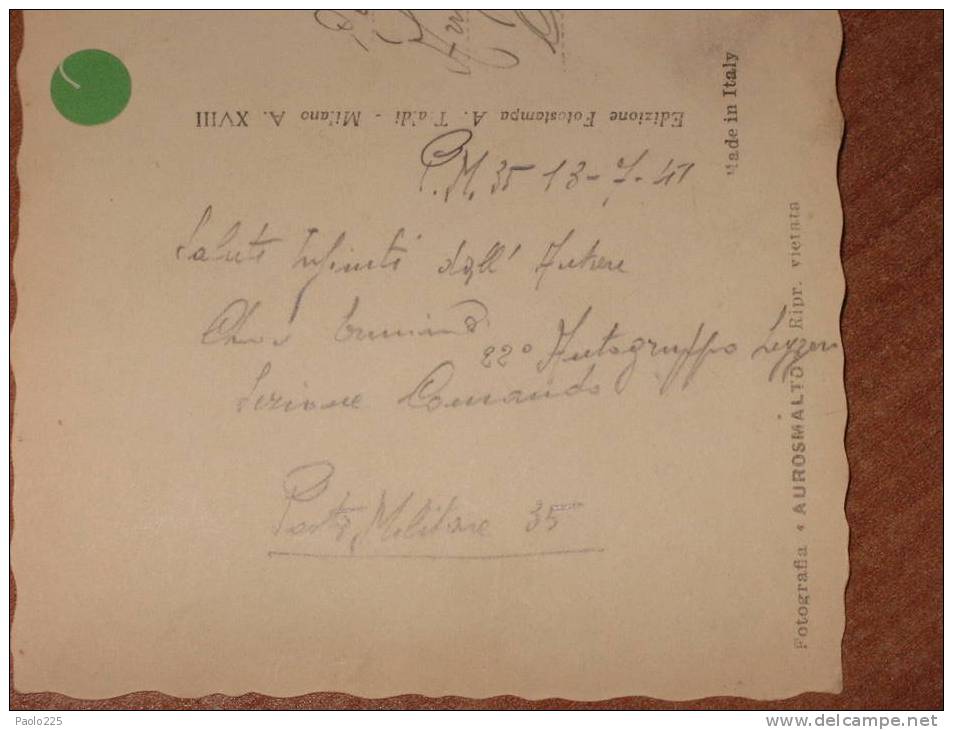 Edizione Fotostampa A. Taldi - Milano A. XVIII
Made in Italy
P.M. 35 13-7-41
Saluti Infiniti dall'
22° Autogruppo
Sezione Comando
Posta Militare 35
Fotografia « AUROSMALTO » Ripr. vietata
Paolo225
www.delcampe.net